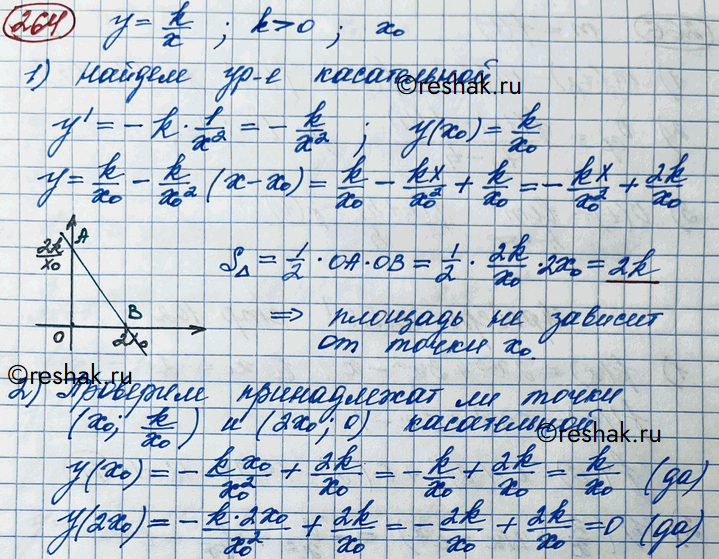 264 y = k/x ; k>0 ; x₀
©reshak.ru
1) Найдем ур-е касательной
y' = -k·1/x² = -k/x² ; y(x₀) = k/x₀
y = k/x₀ - k/x₀² (x-x₀) = k/x₀ - kx/x₀² + k/x₀ = -kx/x₀² + 2k/x₀
2k/x₀ A
S△ = 1/2 · OA · OB = 1/2 · 2k/x₀ · 2x₀ = 2k
B
0 2x₀
⇒ площадь не зависит
от точки x₀.
©reshak.ru
2) Проверим принадлежат ли точки
(x₀; k/x₀) и (2x₀; 0) касательной
©reshak.ru
y(x₀) = -k x₀/x₀² + 2k/x₀ = -k/x₀ + 2k/x₀ = k/x₀ (да)
y(2x₀) = -k·2x₀/x₀² + 2k/x₀ = -2k/x₀ + 2k/x₀ = 0 (да)